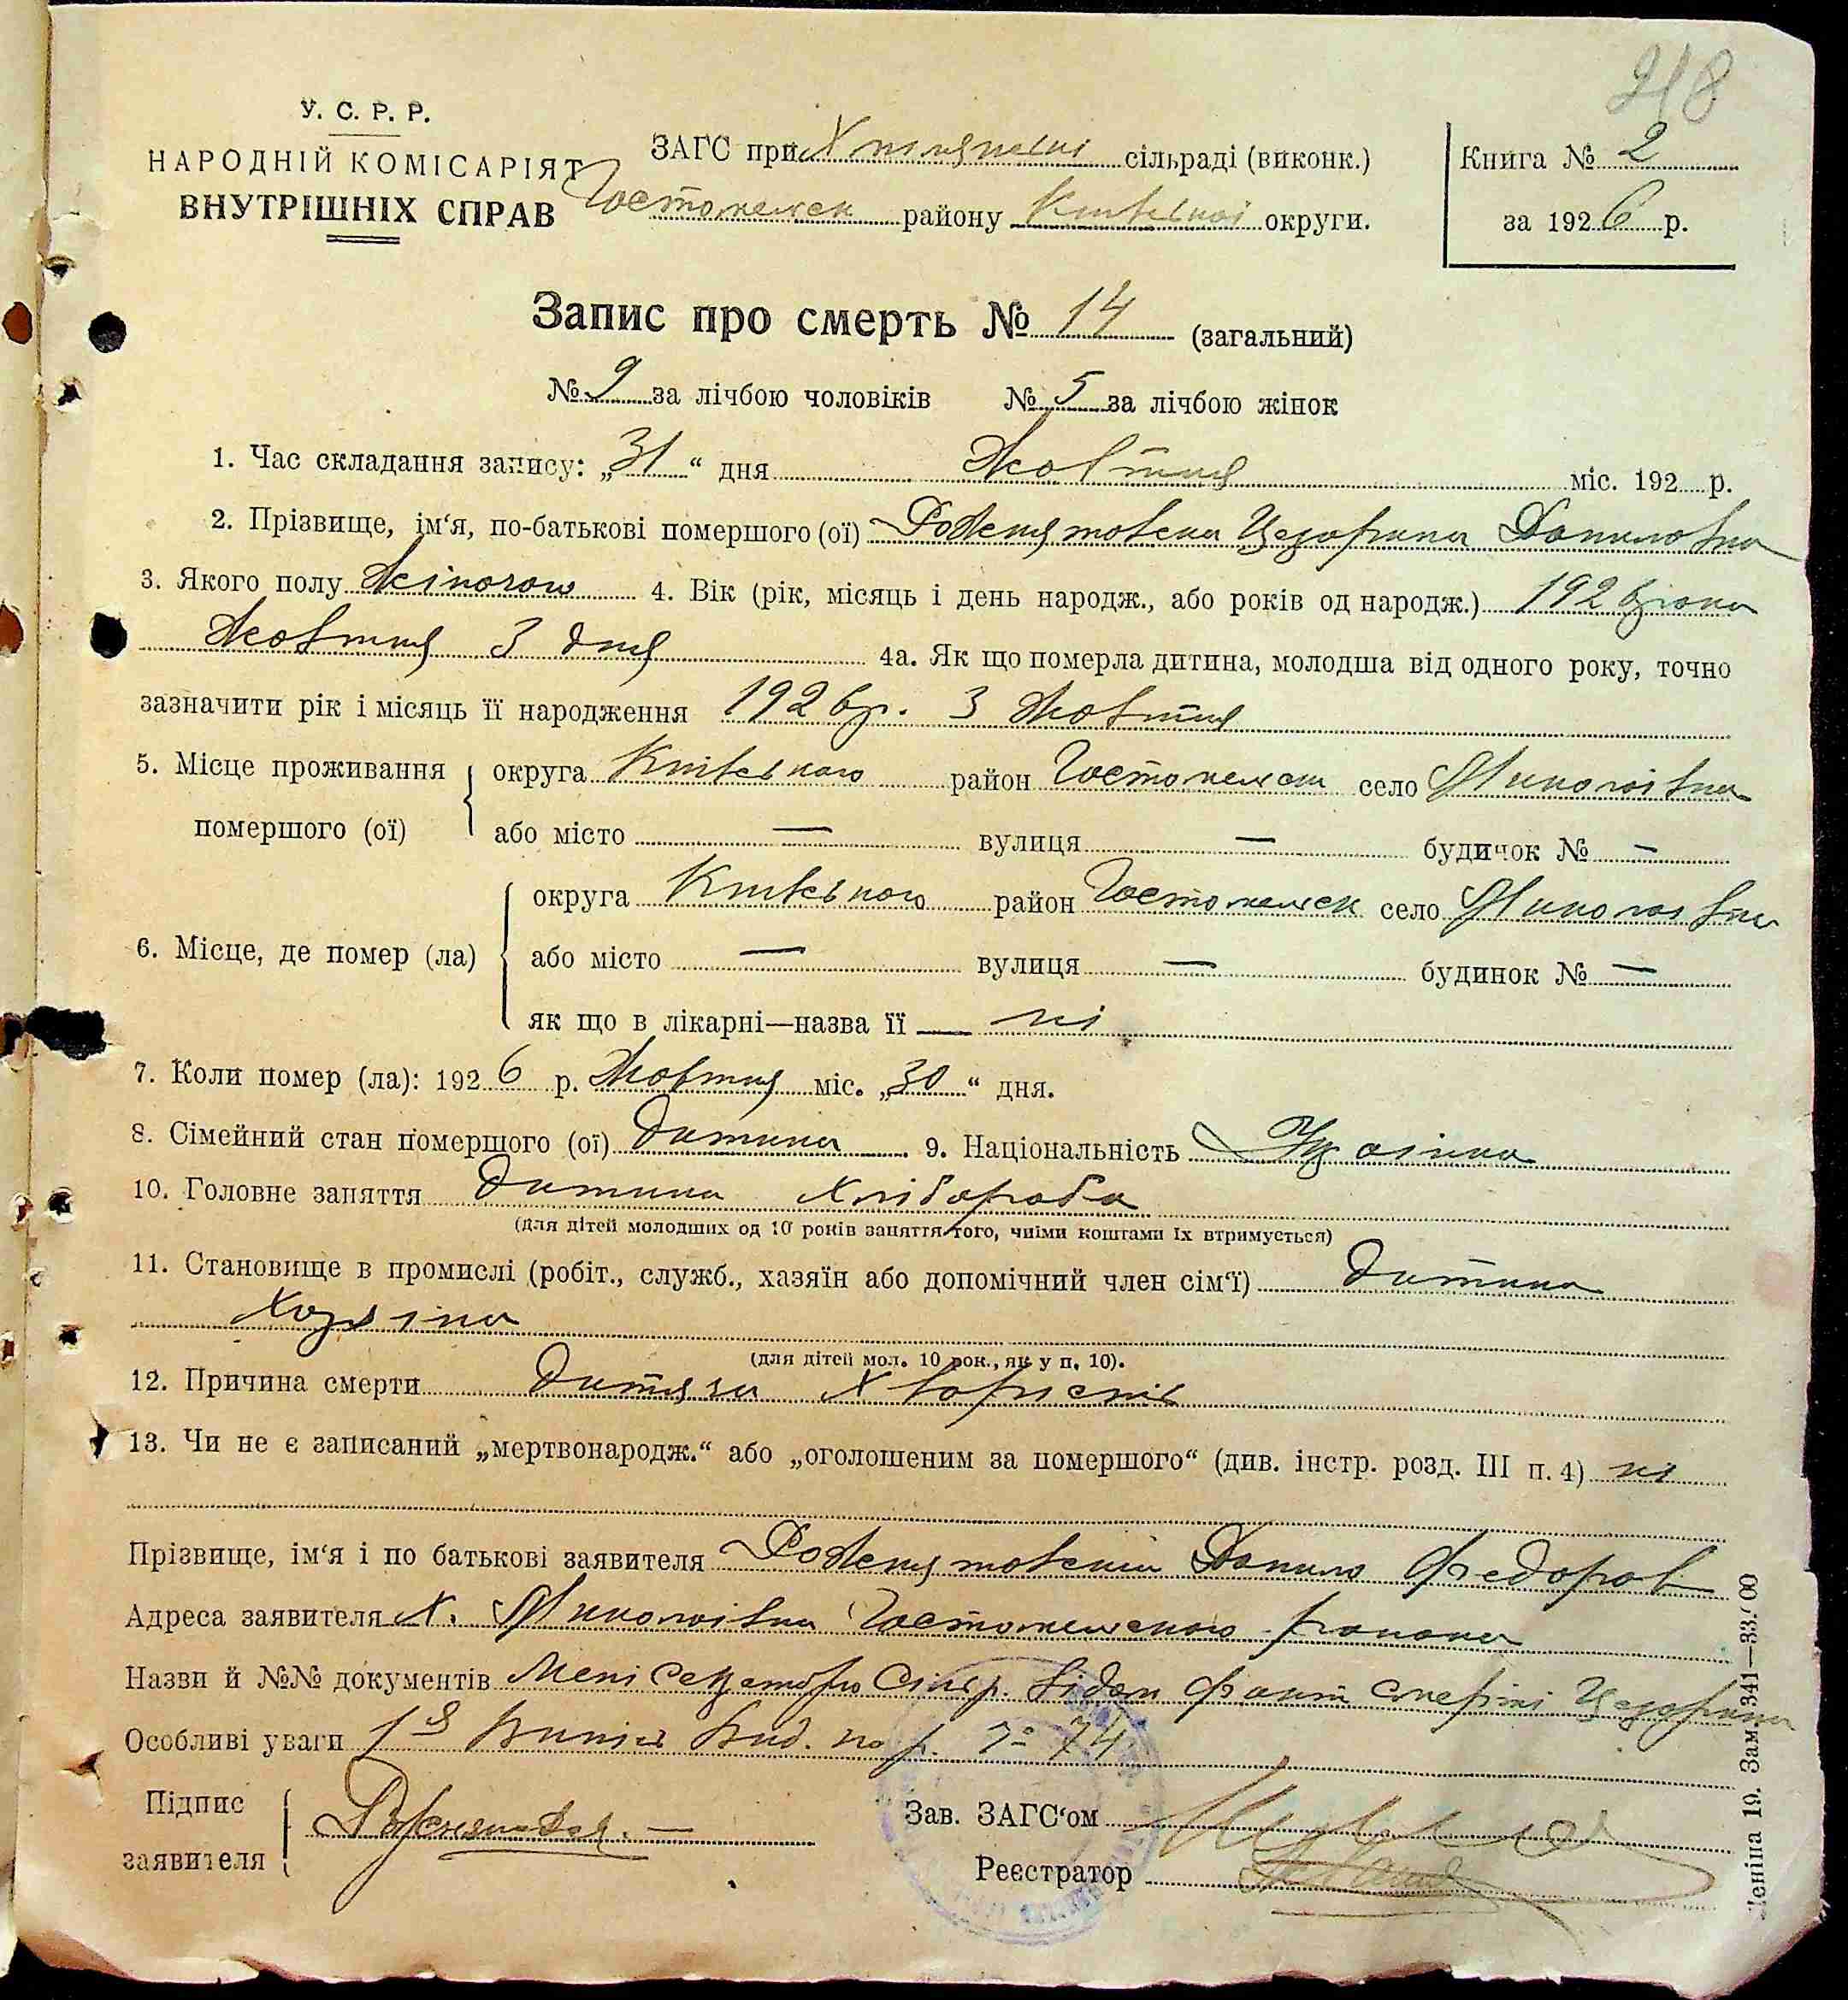 218
У. С. Р. Р.
НАРОДНІЙ КОМІСАРІЯТ
ВНУТРІШНІХ СПРАВ
ЗАГС при сільраді (виконк.)
Гостомельск району Київської округи.
Книга № 2
за 1926 р.
Запис про смерть № 14 (загальний)
№ 9 за лічбою чоловіків № 5 за лічбою жінок
1. Час складання запису: „31“ дня Жовтня міс. 192 р.
2. Прізвище, ім‘я, по-батькові помершого (ої) Рожнятовска Цезарина Даниловна
3. Якого полу Жіночого 4. Вік (рік, місяць і день народж., або років од народж.) 1926 рока
Жовтня 3 дня 4а. Як що померла дитина, молодша від одного року, точно
зазначити рік і місяць її народження 1926 р. 3 Жовтня
5. Місце проживання помершого (ої) округа Київського район Гостомельск село Миколаївка
або місто — вулиця — будинок № —
6. Місце, де помер (ла) округа Київського район Гостомельск село Миколаївка
або місто — вулиця — будинок № —
як що в лікарні—назва її — ні
7. Коли помер (ла): 1926 р. Жовтня міс. „30“ дня.
8. Сімейний стан помершого (ої) Дитина 9. Національність
10. Головне заняття Дитина Хлібороба
(для дітей молодших од 10 років заняття того, чиїми коштами їх втримується)
11. Становище в промислі (робіт., служб., хазяїн або допомічний член сім‘ї) Дитина
Хозяїна
(для дітей мол. 10 рок., як у п. 10).
12. Причина смерти Дитяча Хворість
13. Чи не є записаний „мертвонародж.“ або „оголошеним за помершого“ (див. інстр. розд. III п. 4) ні
Прізвище, ім‘я і по батькові заявителя Рожнятовский Данило Федоров
Адреса заявителя х. Миколаївка Гостомельского району
Назви й №№ документів Мені Секретарю Сільр. відом факт смерті Цезарини
Особливі уваги Випис вид. по р. № 74
Підпис заявителя
Зав. ЗАГС‘ом
Реєстратор
Леніна 19. Зам. 341—33.'00